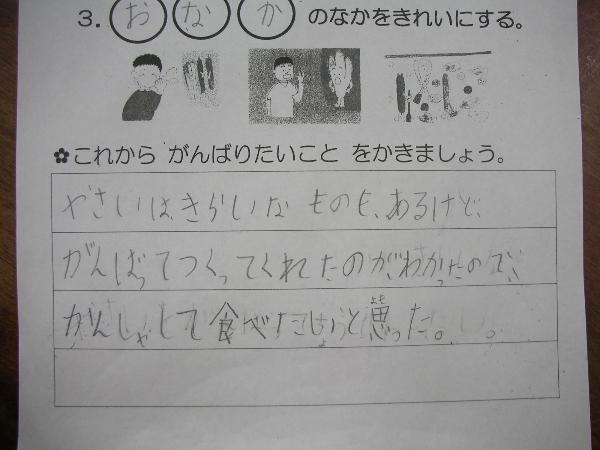 3. おなかのなかをきれいにする。
✿これから がんばりたいこと をかきましょう。
やさいは、きらいな ものも、あるけど、
がんばってつくってくれたのがわかったので、
がんしゃして食べたしようと思った。